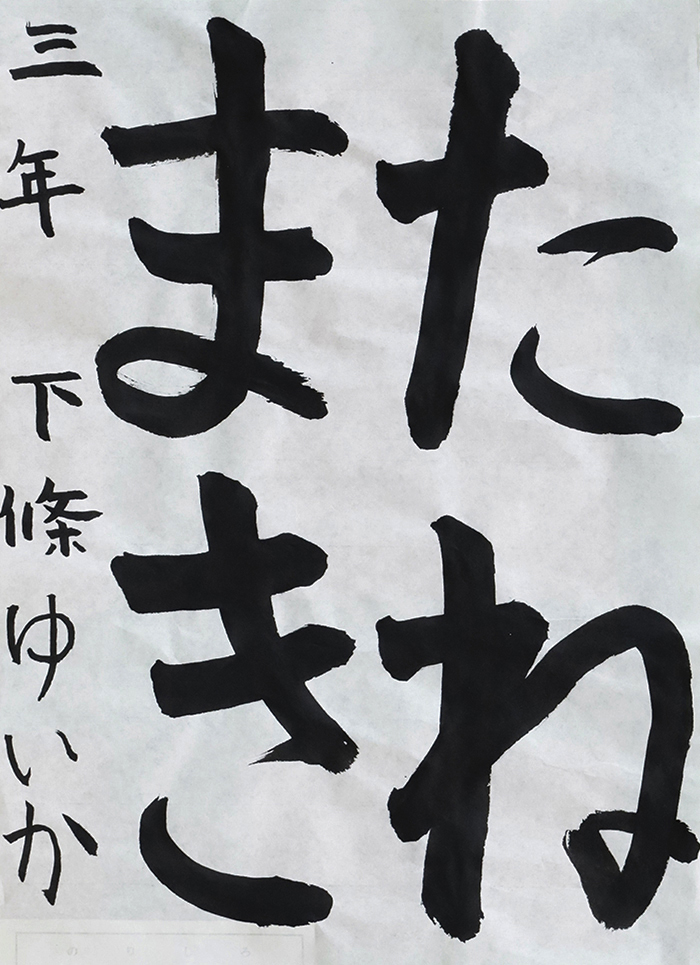 たね
まき
三年 下條ゆいか